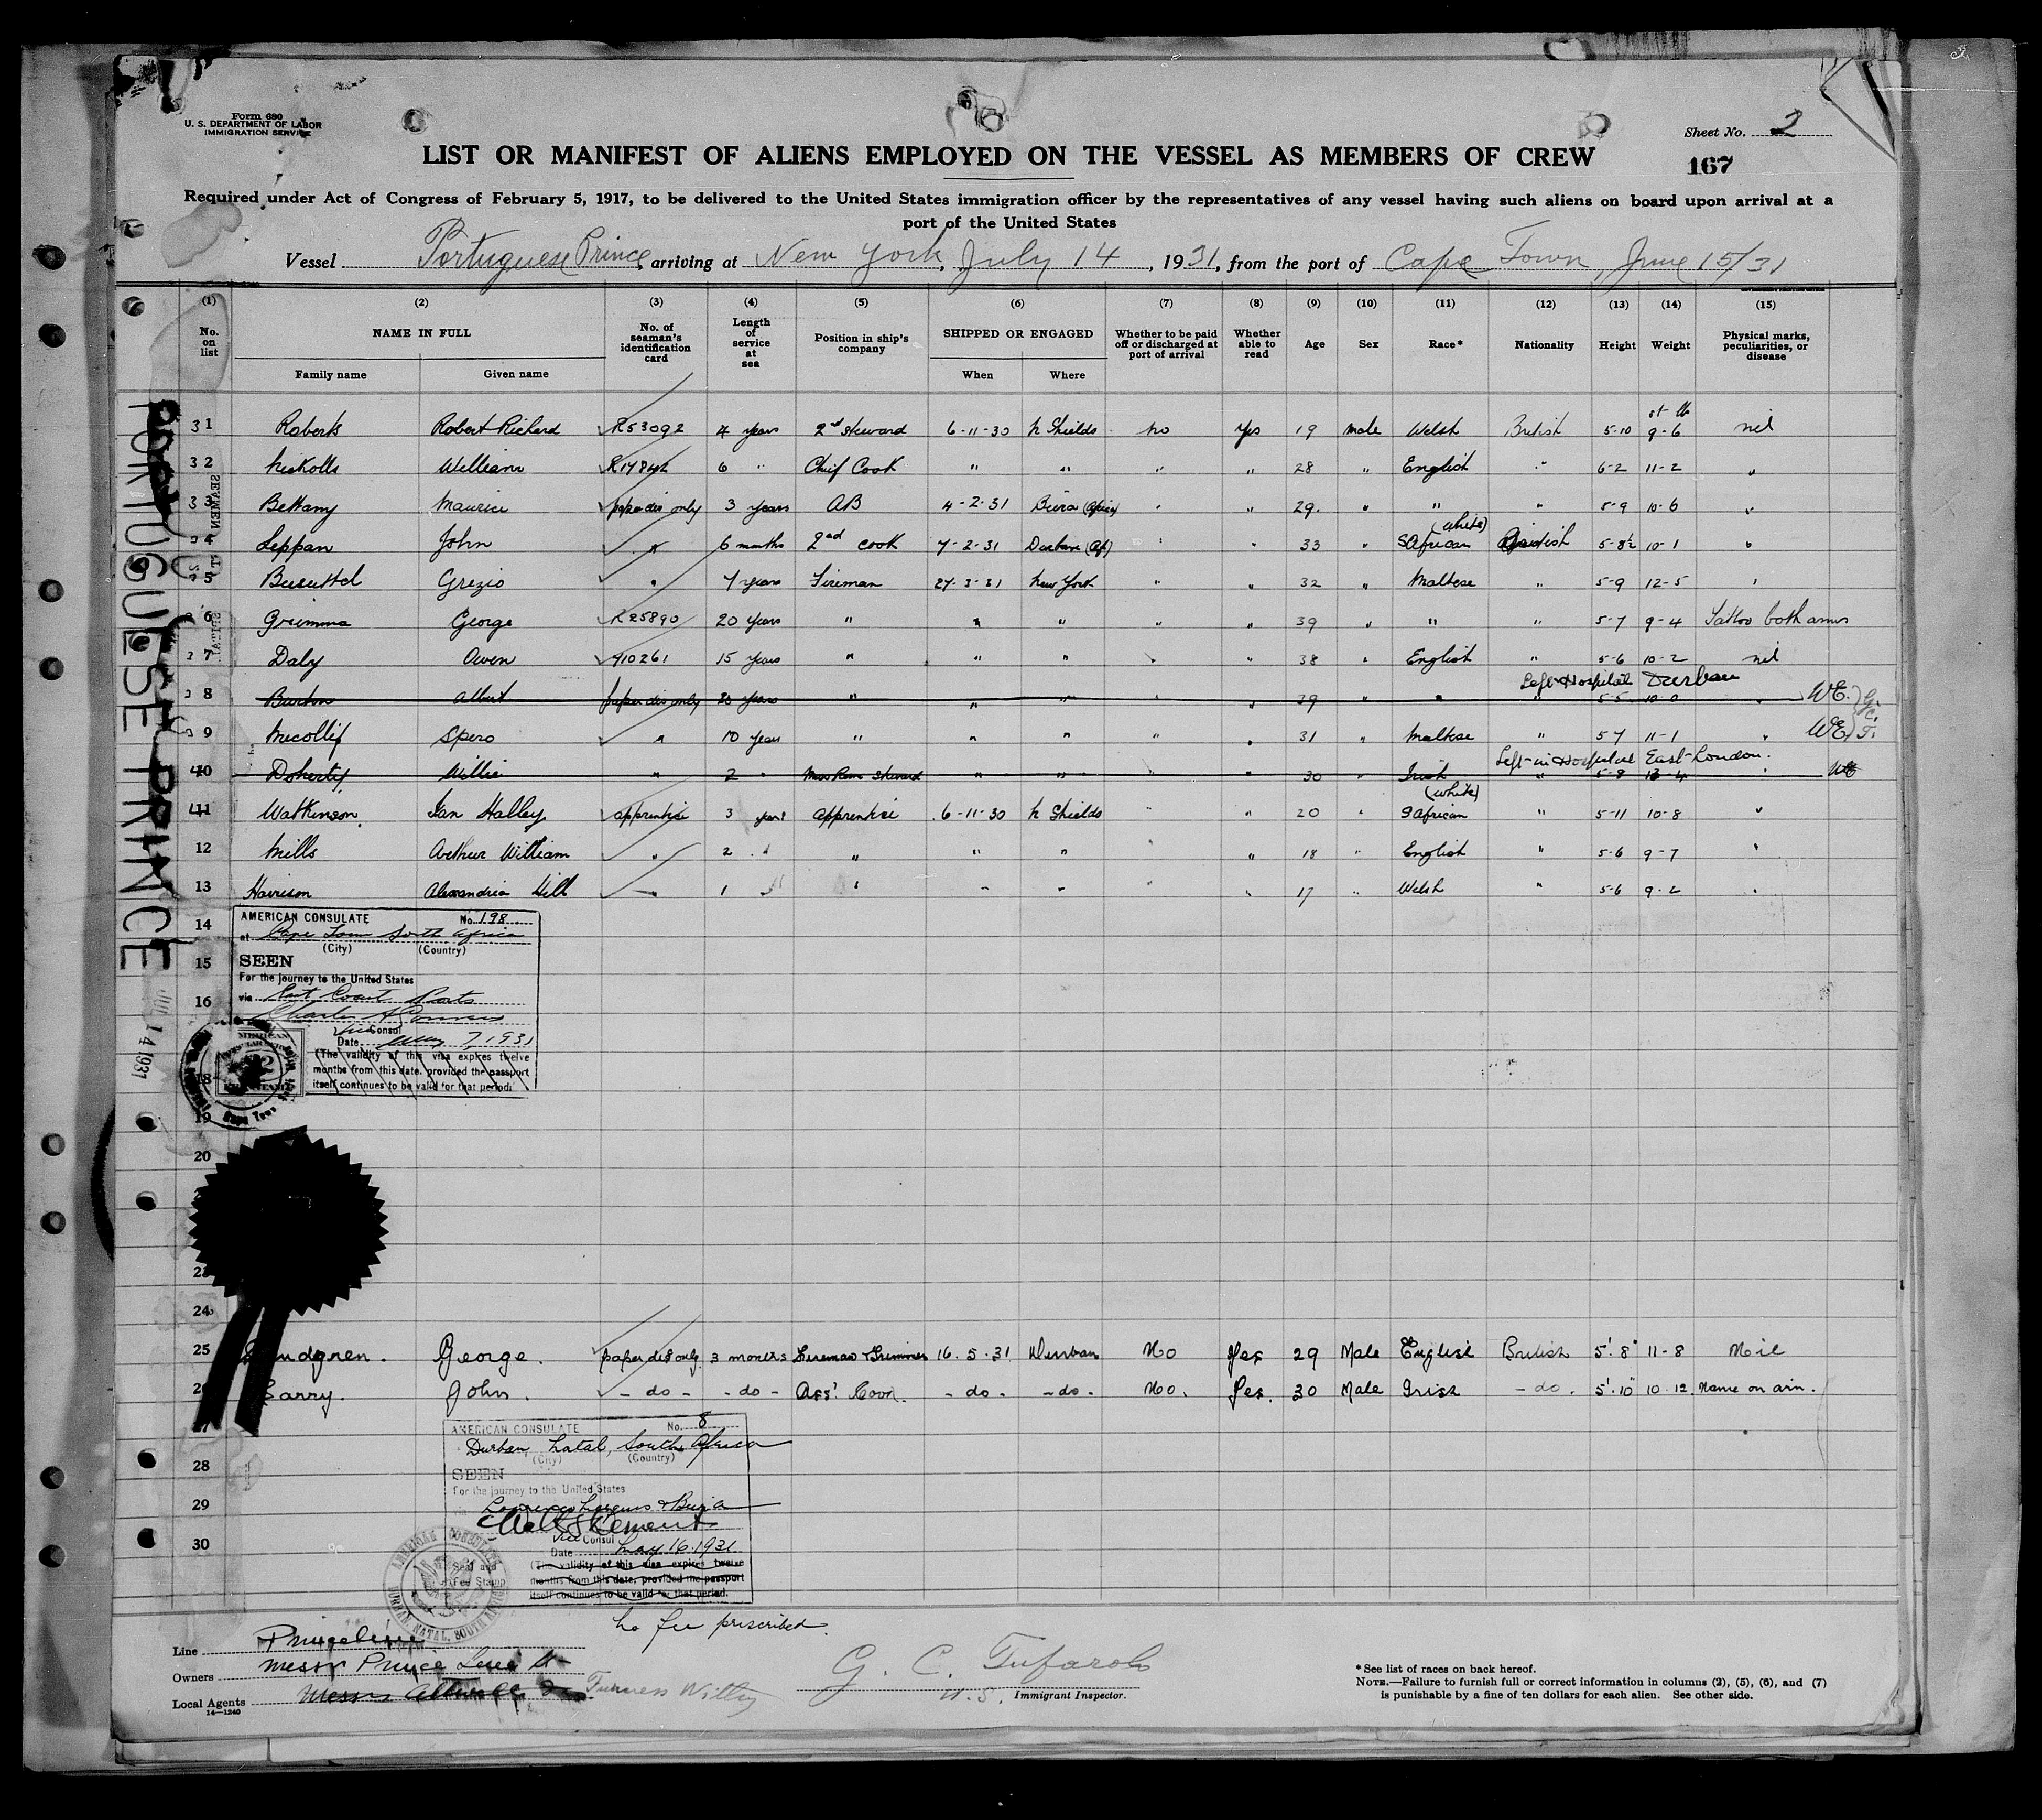 Form 680
U. S. DEPARTMENT OF LABOR
IMMIGRATION SERVICE
Sheet No. 2
LIST OR MANIFEST OF ALIENS EMPLOYED ON THE VESSEL AS MEMBERS OF CREW
167
Required under Act of Congress of February 5, 1917, to be delivered to the United States immigration officer by the representatives of any vessel having such aliens on board upon arrival at a
port of the United States
Vessel Portuguese Prince, arriving at New York, July 14, 1931, from the port of Cape Town, June 15/31
(1) (2) (3) (4) (5) (6) (7) (8) (9) (10) (11) (12) (13) (14) (15)
No. on list NAME IN FULL No. of seaman's identification card Length of service at sea Position in ship's company SHIPPED OR ENGAGED Whether to be paid off or discharged at port of arrival Whether able to read Age Sex Race* Nationality Height Weight Physical marks, peculiarities, or disease
Family name Given name When Where
st lb
31 Roberts Robert Richard R53092 4 years 2nd Steward 6-11-30 N Shields no yes 19 male Welsh British 5-10 9-6 nil
32 Nickolls William 6 " Chief Cook " " " " 28 " English " 6-2 11-2 "
33 Bettany Maurice paper dis only 3 years AB 4-2-31 Beira (Africa) " " 29 " " " 5-9 10-6 "
(white)
34 Leppan John " 6 months 2nd cook 7-2-31 Durban (Af) " " 33 " S African British 5-8½ 10-1 "
5 Grezio " 7 years Fireman 27-3-31 New York " " 32 " Maltese " 5-9 12-5 "
6 Grimma George R25890 20 years " " " " " 39 " " " 5-7 9-4 Tattoo both arms
7 Daly Owen 910261 15 years " " " " " 38 " English " 5-6 10-2 nil
Left Hospital Durban
8 Burton Albert paper dis only 20 years " " " " 39 " " " 5-5 10-0 " WE
9 Micollif Spero " 10 years " " " " " 31 " Maltese " 5-7 11-1 " WE
Left in Hospital East London.
40 Doherty Willie " 2 " Mess Room Steward " " " " 30 " Irish " 5-8 " WE
(white)
41 Watkinson Ian Halley apprentice 3 years apprentice 6-11-30 N Shields " " 20 " S African " 5-11 10-8 "
12 Mills Arthur William " 2 " " " " " " 18 " English " 5-6 9-7 "
13 Harrison Alexandria Hill " 1 " " " " " " 17 " Welsh " 5-6 9-2 "
14
AMERICAN CONSULATE No. 198
at Cape Town South Africa
(City) (Country)
15
SEEN
For the journey to the United States
16
via East Coast Ports
Vice Consul
Date May 7, 1931
(The validity of this visa expires twelve
months from this date, provided the passport
itself continues to be valid for that period.
18
19
20
24
25 George. paper dis only 3 months Fireman & Trimmer 16.5.31 Durban No Yes 29 Male English British 5'.8" 11-8 Nil
John. - do - - do - Ass! Cook. - do - - do - No. Yes. 30 Male Irish - do. 5'.10 10.12 Name on arm.
AMERICAN CONSULATE No. 8
Durban, Natal, South Africa
(City) (Country)
28
SEEN
For the journey to the United States
29
Lourenco Marques & Beira
30
Vice Consul
Date May 16.1931
Seal and
Fee Stamp
(The validity of this visa expires twelve
months from this date, provided the passport
itself continues to be valid for that period.
AMERICAN CONSULATE
DURBAN, NATAL, SOUTH AFRICA
PORTUGUESE PRINCE
JUL 14 1931
no fee prescribed.
Line Prince Line
Owners Messr Prince Line
Local Agents Furness Withy
14—1240
G. C. Tufarolo
U.S. Immigrant Inspector.
* See list of races on back hereof.
NOTE.—Failure to furnish full or correct information in columns (2), (5), (6), and (7)
is punishable by a fine of ten dollars for each alien. See other side.